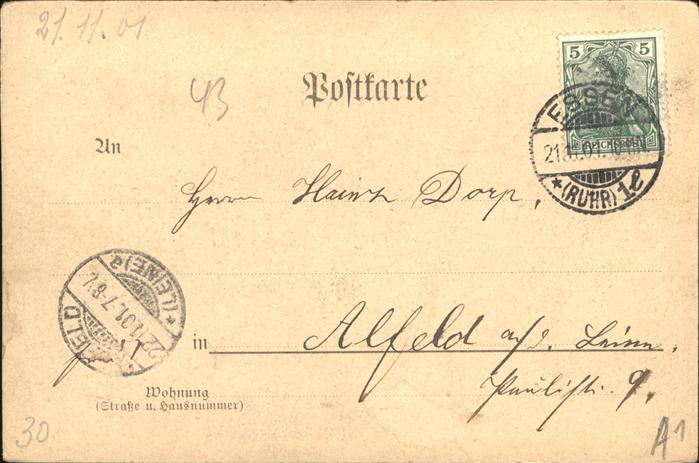 21.11.01
43
Postkarte
5 5
ESSEN
21.11.01.
*(RUHR) 1ℓ
An
Herrn Heinr. Dorp,
(LEINE) a
22.11.01. 7-8 V.
in Alfeld a/d. Leine.
Paulistr. 9.
Wohnung
(Straße u. Hausnummer)
30
A1